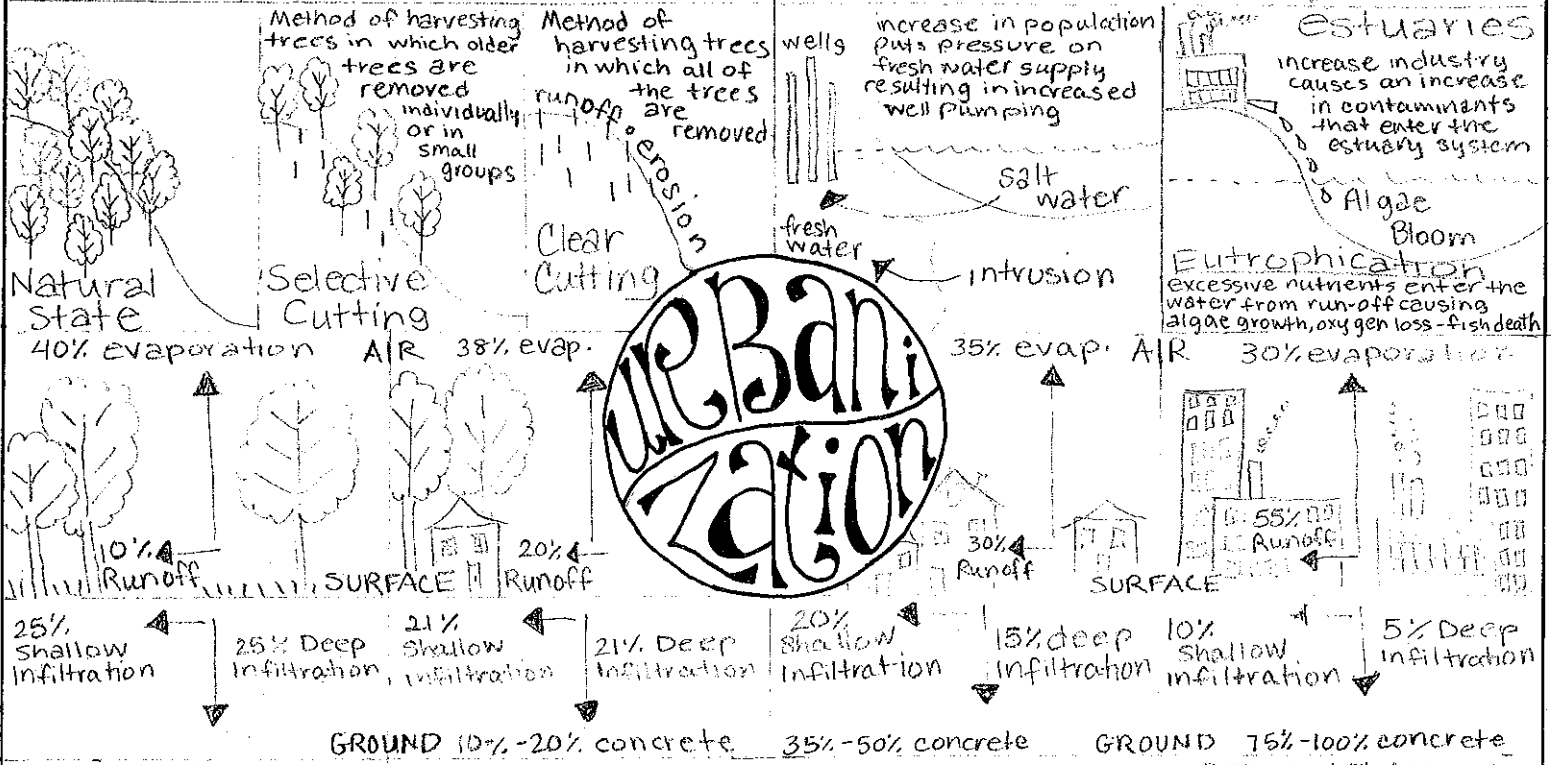 Method of harvesting
trees in which older
trees are
removed
individually
or in
small
groups
Natural
State
Selective
Cutting
Method of
harvesting trees
in which all of
the trees
are
removed
runoff
erosion
Clear
Cutting
wells
increase in population
puts pressure on
fresh water supply
resulting in increased
well pumping
salt
water
fresh
water
intrusion
estuaries
increase industry
causes an increase
in contaminants
that enter the
estuary system
Algae
Bloom
Eutrophication
excessive nutrients enter the
water from run-off causing
algae growth, oxygen loss-fish death
urBani
zation
40% evaporation AIR 38% evap.
35% evap. AIR 30% evaporation
10%
Runoff
SURFACE
20%
Runoff
30%
Runoff
SURFACE
55%
Runoff
25%
Shallow
Infiltration
25% Deep
Infiltration
21%
Shallow
infiltration
21% Deep
Infiltration
20%
Shallow
Infiltration
15% deep
Infiltration
10%
Shallow
infiltration
5% Deep
Infiltration
GROUND 10%-20% concrete 35%-50% concrete GROUND 75%-100% concrete